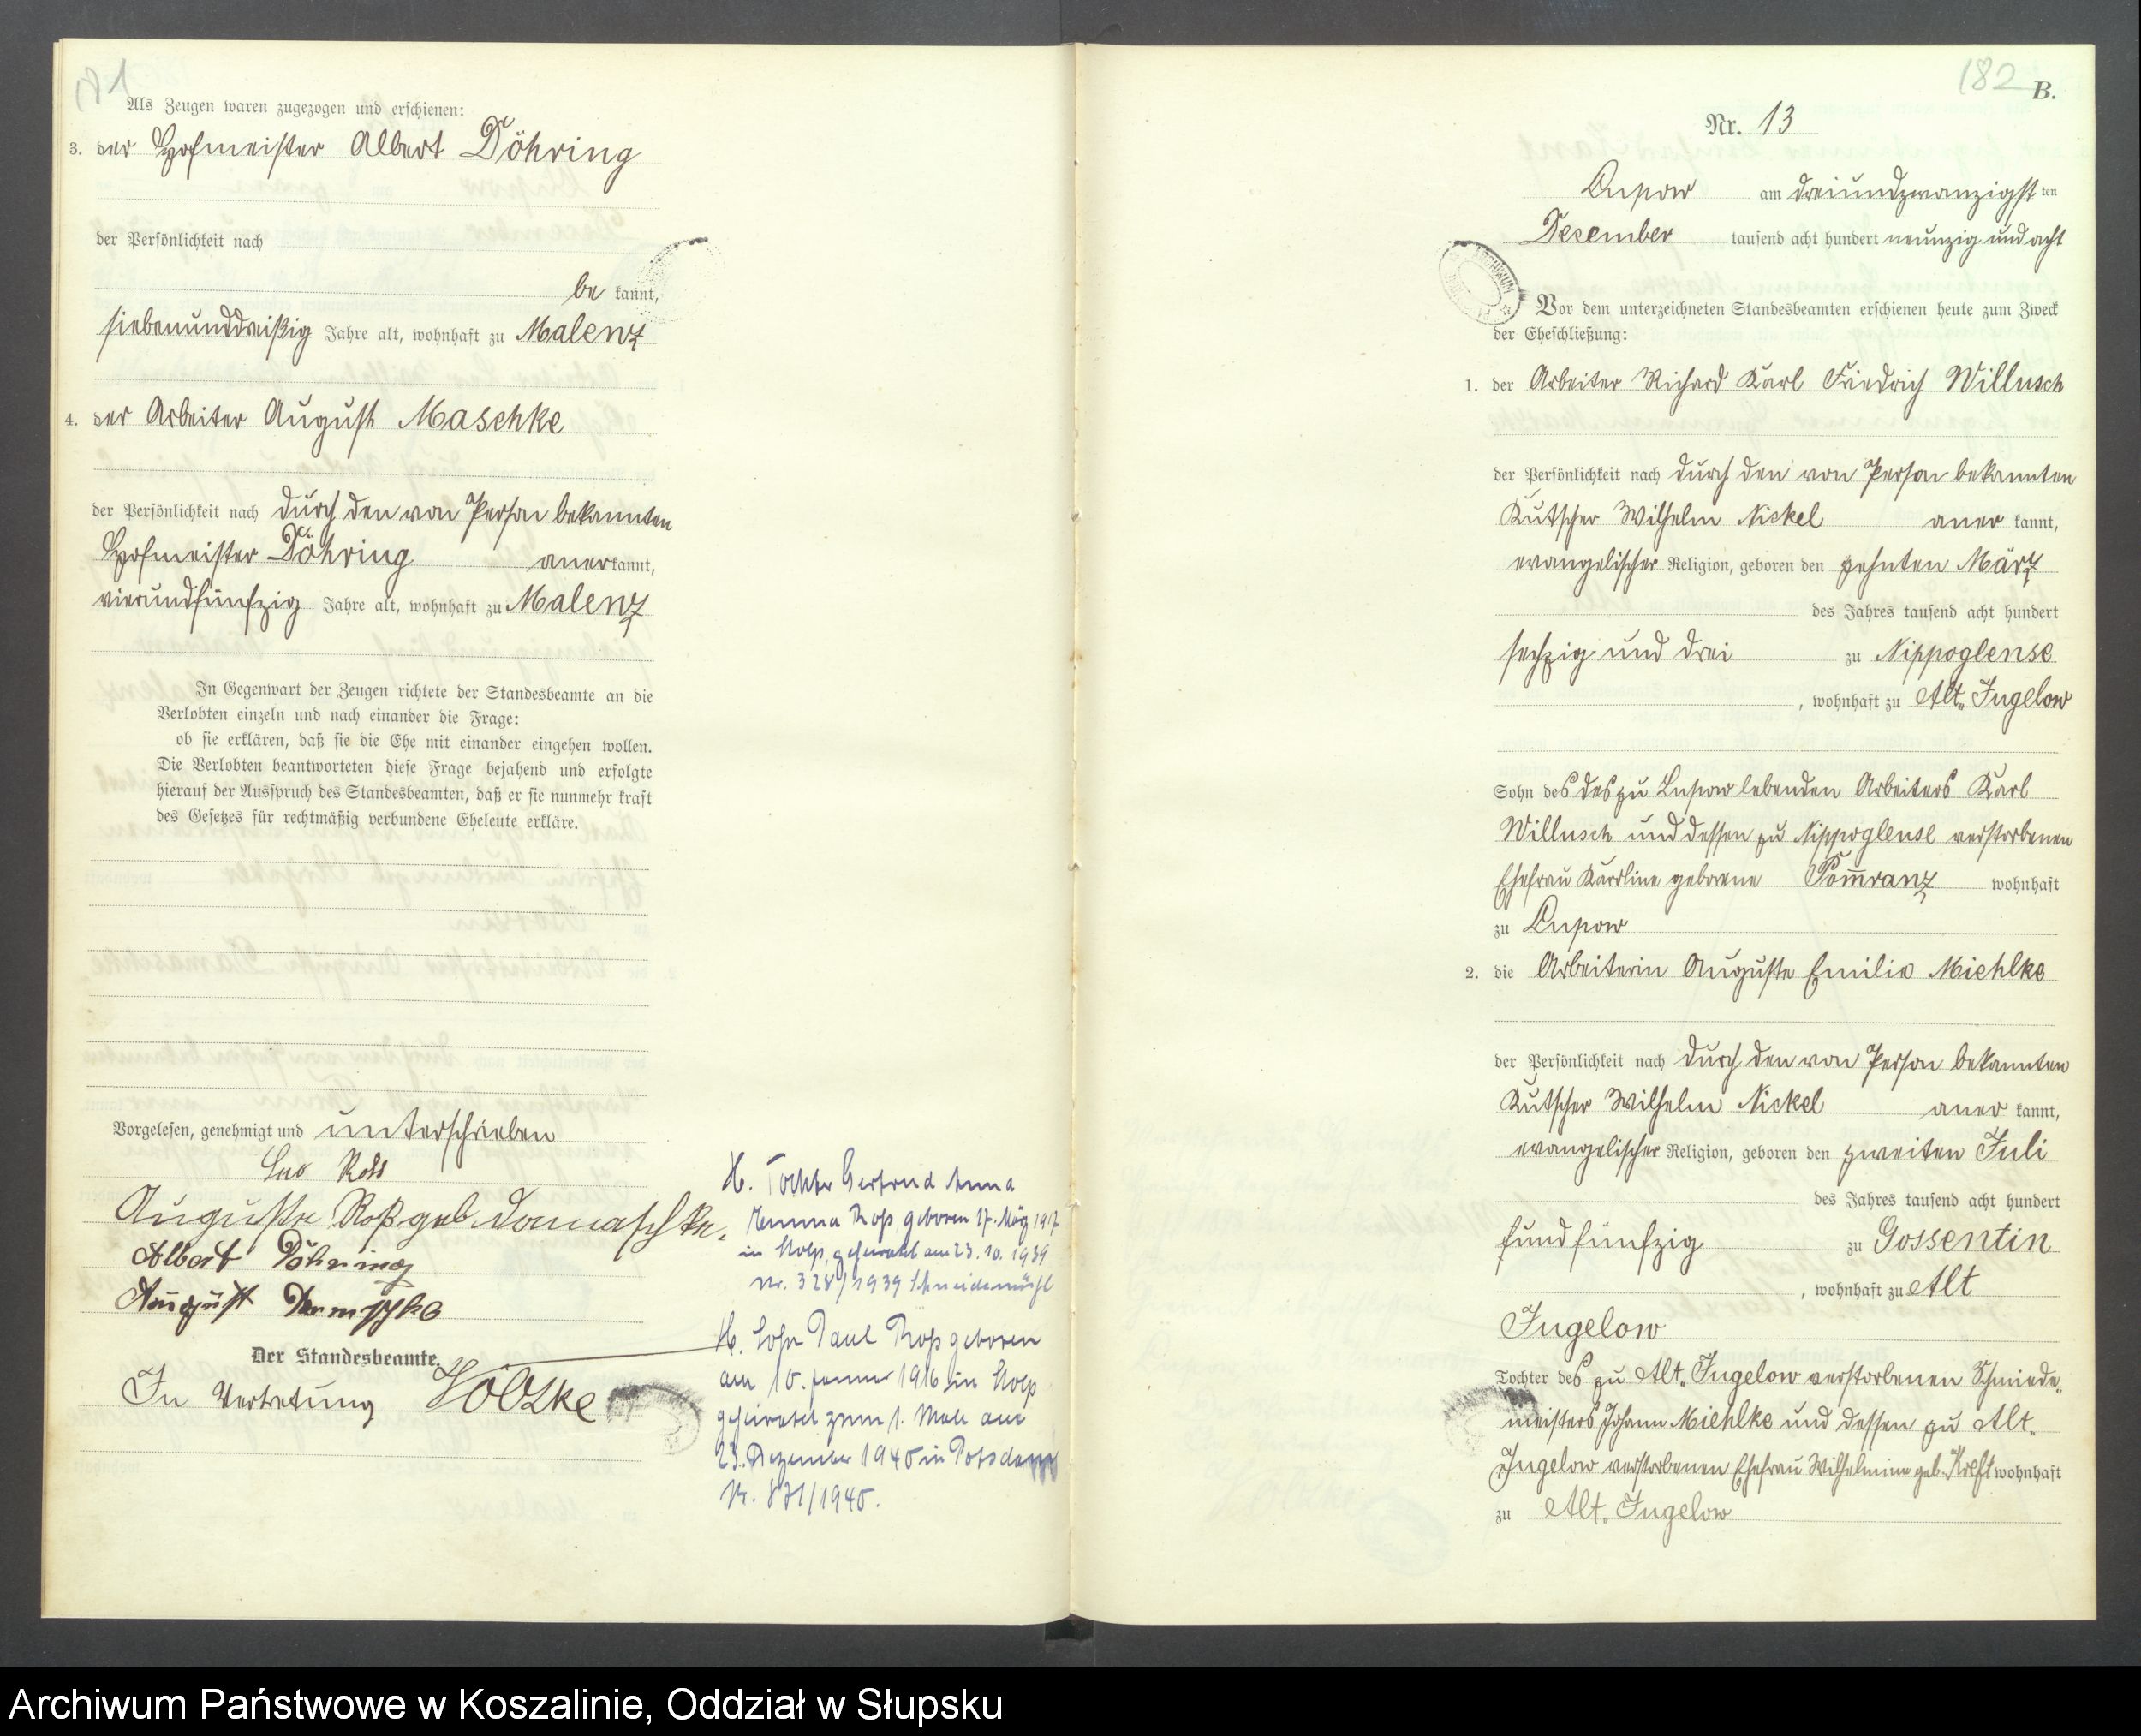 181
Als Zeugen waren zugezogen und erschienen:
3. der Hofmeister Albert Döhring
der Persönlichkeit nach
be kannt,
siebenunddreißig Jahre alt, wohnhaft zu Malenz
4. der Arbeiter August Maschke
der Persönlichkeit nach durch den von Person bekannten
Hofmeister Döhring aner kannt,
vierundfünfzig Jahre alt, wohnhaft zu Malenz
In Gegenwart der Zeugen richtete der Standesbeamte an die
Verlobten einzeln und nach einander die Frage:
ob sie erklären, daß sie die Ehe mit einander eingehen wollen.
Die Verlobten beantworteten diese Frage bejahend und erfolgte
hierauf der Ausspruch des Standesbeamten, daß er sie nunmehr kraft
des Gesetzes für rechtmäßig verbundene Eheleute erkläre.
Vorgelesen, genehmigt und unterschrieben
Auguste Roß geb Damaschke.
Albert Döhring
August
Der Standesbeamte.
In Vertretung
H. Tochter Gertrud Anna
Emma Roß geboren 17. März 1917
in Stolp, geheiratet am 23. 10. 1939
Nr. 328/1939 Schneidemühl
H. Sohn Paul Roß geboren
am 10. Januar 1916 in Stolp
geheiratet zum 1. Male am
23. Dezember 1940 in Potsdam
Nr. 871/1940.
182
B.
Nr. 13
Lupow am dreiundzwanzigst ten
Dezember tausend acht hundert neunzig und acht
Vor dem unterzeichneten Standesbeamten erschienen heute zum Zweck
der Eheschließung:
1. der Arbeiter Richard Karl Friedrich Willusch
der Persönlichkeit nach durch den von Person bekannten
Kutscher Wilhelm Nickel aner kannt,
evangelischer Religion, geboren den zehnten März
des Jahres tausend acht hundert
sechzig und drei zu Nippoglense
, wohnhaft zu Alt. Jugelow
Sohn des des zu Lupow lebenden Arbeiters Karl
Willusch und dessen zu Nippoglense verstorbenen
Ehefrau Karoline geborene Pom̅ranz wohnhaft
zu Lupow
2. die Arbeiterin Auguste Emilie Miehlke
der Persönlichkeit nach durch den von Person bekannten
Kutscher Wilhelm Nickel aner kannt,
evangelischer Religion, geboren den zweiten Juli
des Jahres tausend acht hundert
fundfünfzig zu Gossentin
, wohnhaft zu Alt
Jugelow
Tochter des zu Alt. Jugelow verstorbenen Schmiede-
meisters Johann Miehlke und dessen zu Alt.
Jugelow verstorbenen Ehefrau Wilhelmine geb. Kreft wohnhaft
zu Alt. Jugelow
Archiwum Państwowe w Koszalinie, Oddział w Słupsku